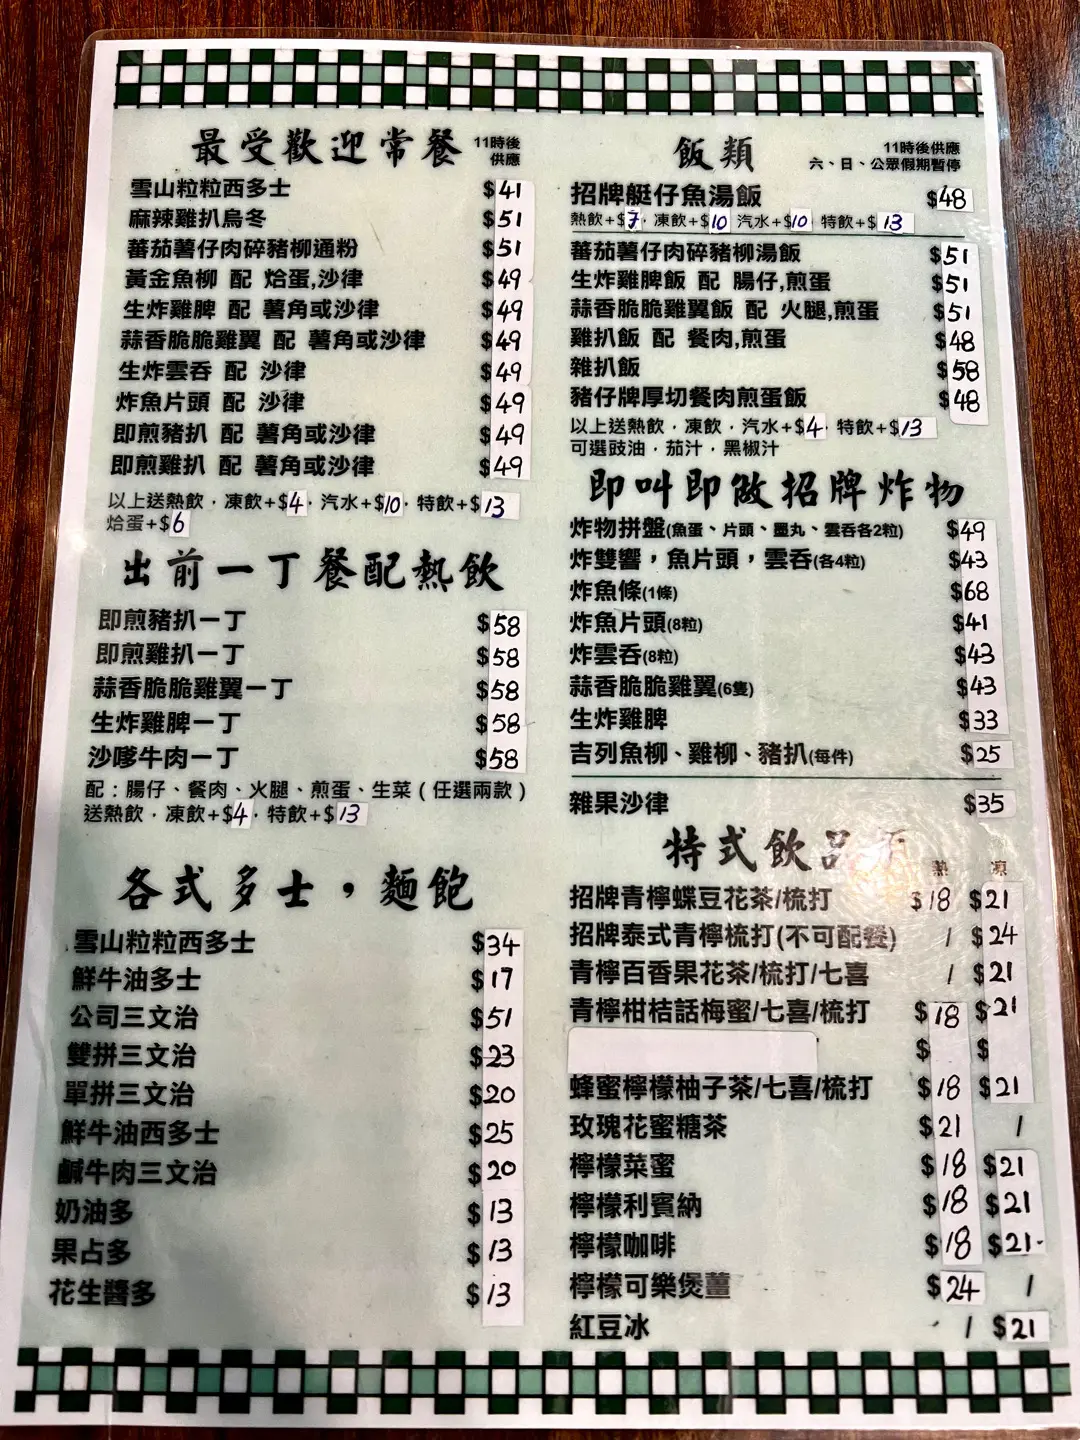 最受歡迎常餐 11時後供應
雪山粒粒西多士 $41
麻辣雞扒烏冬 $51
蕃茄薯仔肉碎豬柳通粉 $51
黃金魚柳 配 烚蛋,沙律 $49
生炸雞脾 配 薯角或沙律 $49
蒜香脆脆雞翼 配 薯角或沙律 $49
生炸雲吞 配 沙律 $49
炸魚片頭 配 沙律 $49
即煎豬扒 配 薯角或沙律 $49
即煎雞扒 配 薯角或沙律 $49
以上送熱飲，凍飲+$4，汽水+$10，特飲+$13
烚蛋+$6
出前一丁餐配熱飲
即煎豬扒一丁 $58
即煎雞扒一丁 $58
蒜香脆脆雞翼一丁 $58
生炸雞脾一丁 $58
沙嗲牛肉一丁 $58
配：腸仔、餐肉、火腿、煎蛋、生菜（任選兩款）
送熱飲，凍飲+$4，特飲+$13
各式多士，麵飽
雪山粒粒西多士 $34
鮮牛油多士 $17
公司三文治 $51
雙拼三文治 $23
單拼三文治 $20
鮮牛油西多士 $25
鹹牛肉三文治 $20
奶油多 $13
果占多 $13
花生醬多 $13
飯類 11時後供應
六、日、公眾假期暫停
招牌艇仔魚湯飯 $48
熱飲+$7，凍飲+$10 汽水+$10 特飲+$13
蕃茄薯仔肉碎豬柳湯飯 $51
生炸雞脾飯 配 腸仔,煎蛋 $51
蒜香脆脆雞翼飯 配 火腿,煎蛋 $51
雞扒飯 配 餐肉,煎蛋 $48
雜扒飯 $58
豬仔牌厚切餐肉煎蛋飯 $48
以上送熱飲，凍飲，汽水+$4，特飲+$13
可選豉油，茄汁，黑椒汁
即叫即做招牌炸物
炸物拼盤(魚蛋、片頭、墨丸、雲吞各2粒) $49
炸雙響，魚片頭，雲吞(各4粒) $43
炸魚條(1條) $68
炸魚片頭(8粒) $41
炸雲吞(8粒) $43
蒜香脆脆雞翼(6隻) $43
生炸雞脾 $33
吉列魚柳、雞柳、豬扒(每件) $25
雜果沙律 $35
特式飲品 熱 凍
招牌青檸蝶豆花茶/梳打 $18 $21
招牌泰式青檸梳打(不可配餐) / $24
青檸百香果花茶/梳打/七喜 / $21
青檸柑桔話梅蜜/七喜/梳打 $18 $21
$ $
蜂蜜檸檬柚子茶/七喜/梳打 $18 $21
玫瑰花蜜糖茶 $21 /
檸檬菜蜜 $18 $21
檸檬利賓納 $18 $21
檸檬咖啡 $18 $21
檸檬可樂煲薑 $24 /
紅豆冰 / $21